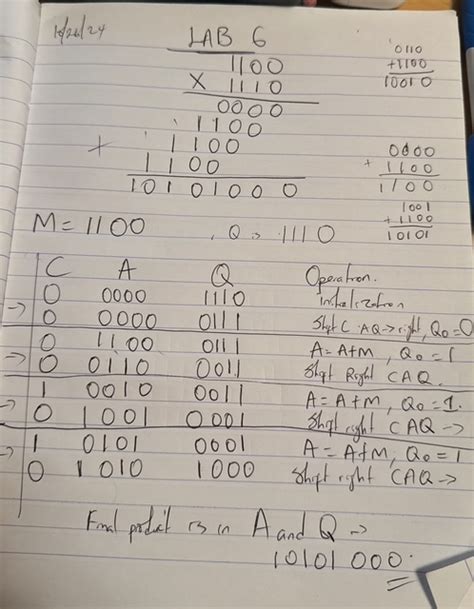 LAB 6
1100
X 1110
0000
1100
+ 1100
1100
10101000
0110
+1100
10010
0000
+ 1100
1100
1001
+ 1100
10101
M = 1100 , Q = 1110
C A Q Operation.
0 0000 1110 Initialization
→ 0 0000 0111 Shift C AQ → right, Q0 = 0
0 1100 0111 A = A+M, Q0 = 1
→ 0 0110 0011 Shift Right CAQ.
1 0010 0011 A = A+M, Q0 = 1.
→ 0 1001 0001 Shift right CAQ →
1 0101 0001 A = A+M, Q0 = 1
→ 0 1010 1000 Shift right CAQ →
Final product is in A and Q →
10101000.